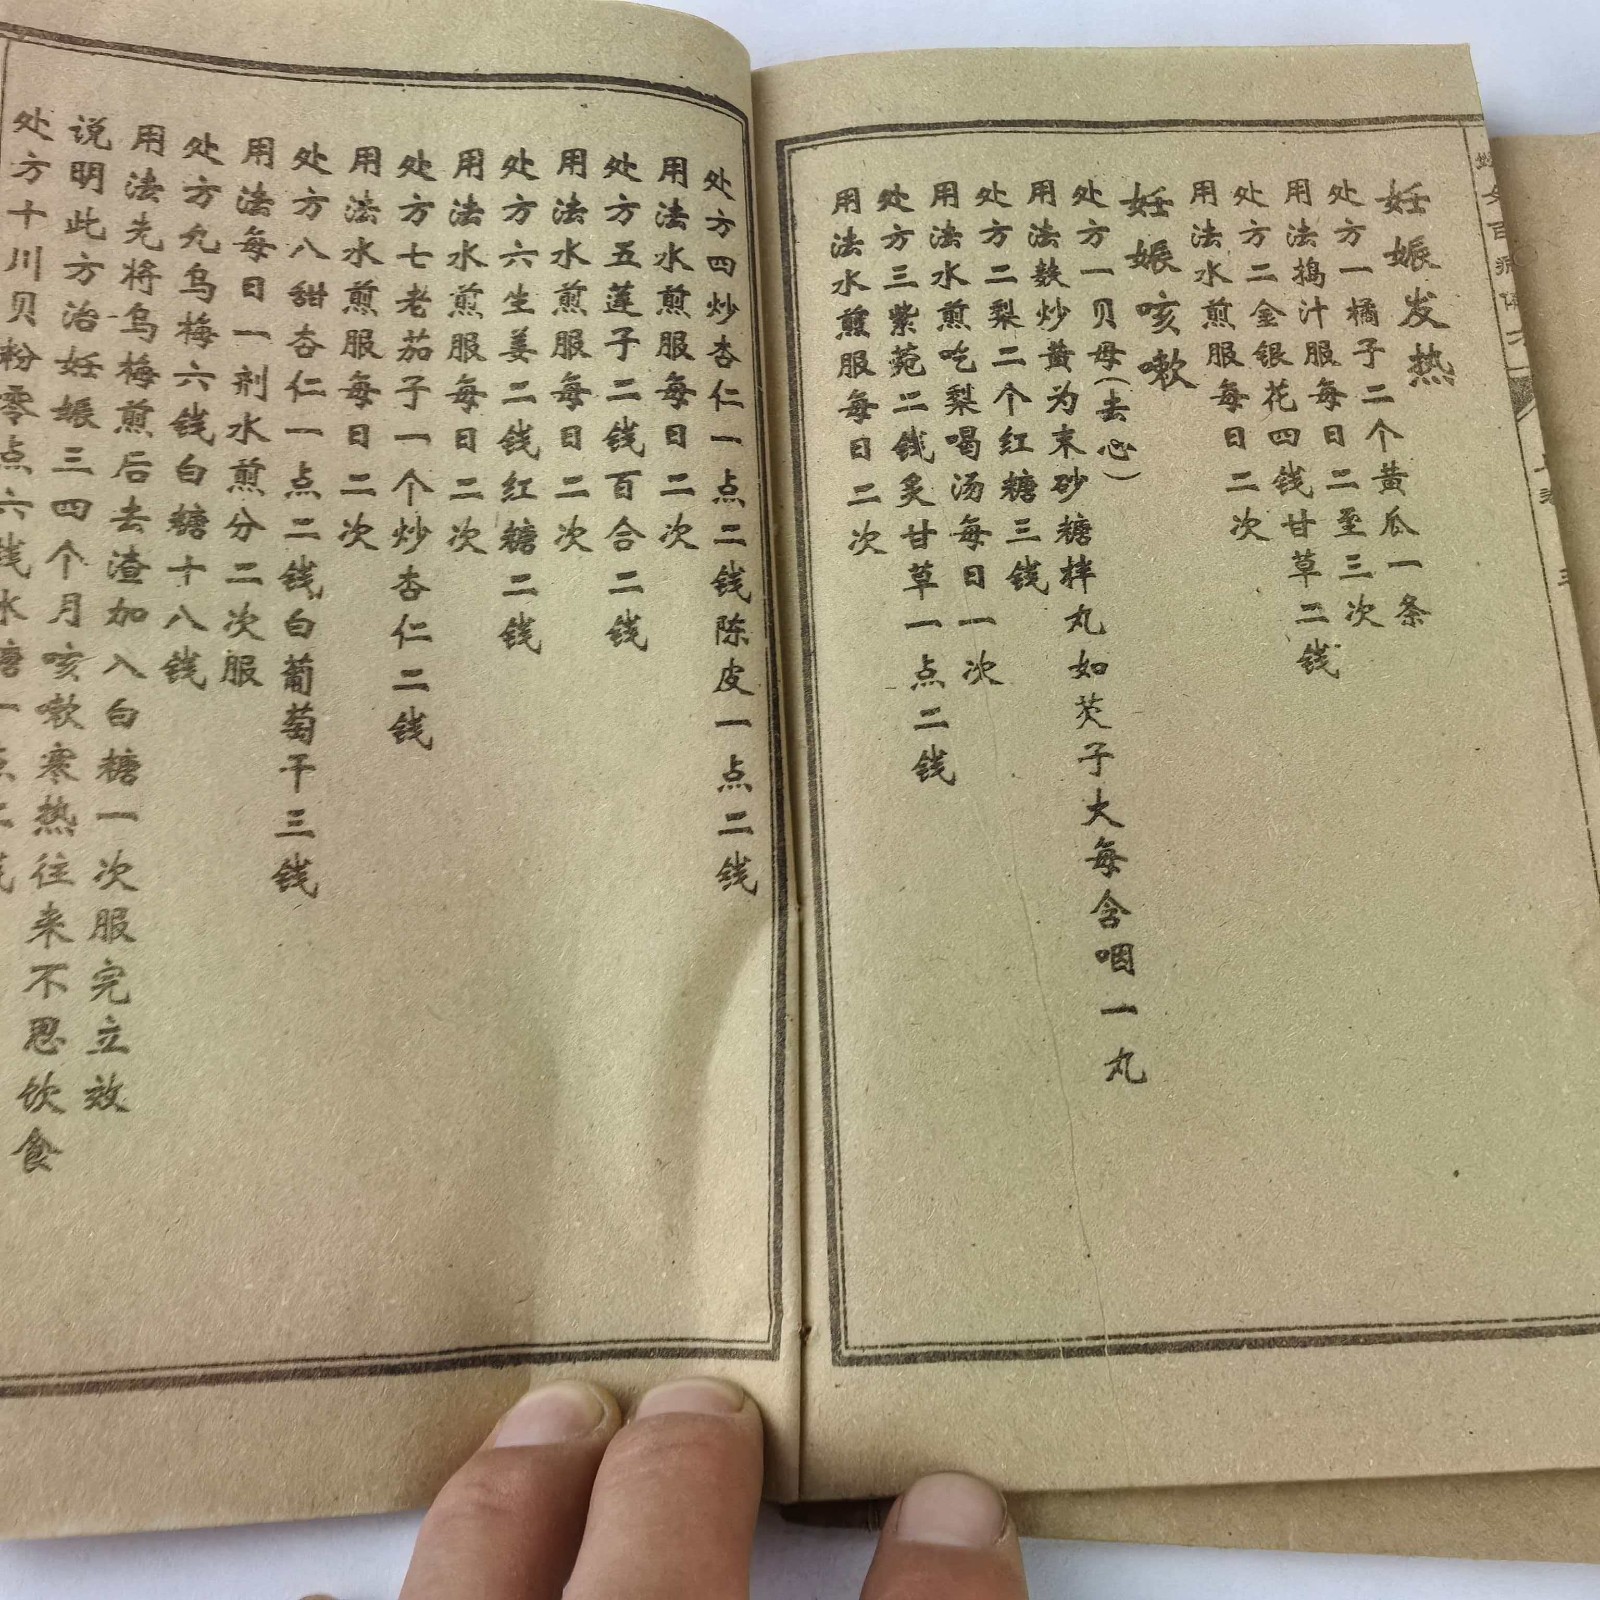 妊娠发热
处方一橘子二个黄瓜一条
用法捣汁服每日二至三次
处方二金银花四钱甘草二钱
用法水煎服每日二次
妊娠咳嗽
处方一贝母(去心)
用法麸炒黄为末砂糖拌丸如芡子大每含咽一丸
处方二梨二个红糖三钱
用法水煎吃梨喝汤每日一次
处方三紫菀二钱炙甘草一点二钱
用法水煎服每日二次
处方四炒杏仁一点二钱陈皮一点二钱
用法水煎服每日二次
处方五莲子二钱百合二钱
用法水煎服每日二次
处方六生姜二钱红糖二钱
用法水煎服每日二次
处方七老茄子一个炒杏仁二钱
用法水煎服每日二次
处方八甜杏仁一点二钱白葡萄干三钱
用法每日一剂水煎分二次服
处方九乌梅六钱白糖十八钱
用法先将乌梅煎后去渣加入白糖一次服完立效
说明此方治妊娠三四个月咳嗽寒热往来不思饮食
处方十川贝粉零点六钱冰糖一点二钱